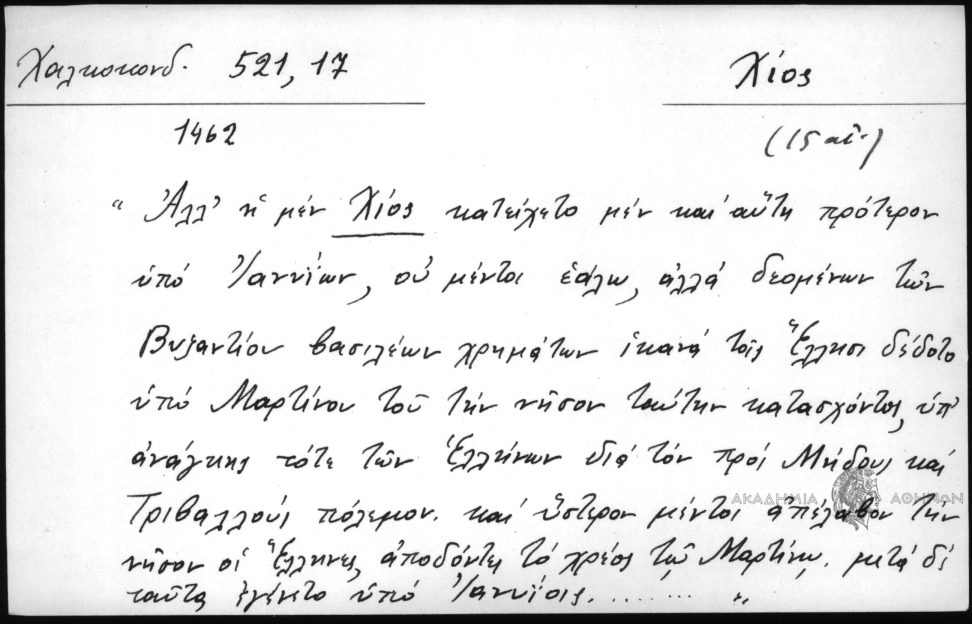 Χαλκοκονδ. 521,17
Χίος
1462
(15 αἰ.)
"Ἀλλ' ἡ μέν Χίος κατείχετο μέν καί αὕτη πρότερον
ὑπό Ἰαννΐων, οὐ μέντοι ἑάλω, ἀλλά δεομένων τῶν
Βυζαντίου βασιλέων χρημάτων ἱκανά τοῖς Ἕλλησι δέδοτο
ὑπό Μαρτίνου τοῦ τήν νῆσον ταύτην κατασχόντος, ὑπ'
ἀνάγκης τότε τῶν Ἑλλήνων διά τόν πρός Μήδους καί
Τριβαλλούς πόλεμον. καί ὕστερον μέντοι ἀπέλαβον τήν
νῆσον οἱ Ἕλληνες, ἀποδόντες τό χρέος τῷ Μαρτίνῳ. μετά δέ
ταῦτα ἐγένετο ὑπό Ἰαννΐοις. ........ "
ΑΚΑΔΗΜΙΑ ΑΘΗΝΩΝ